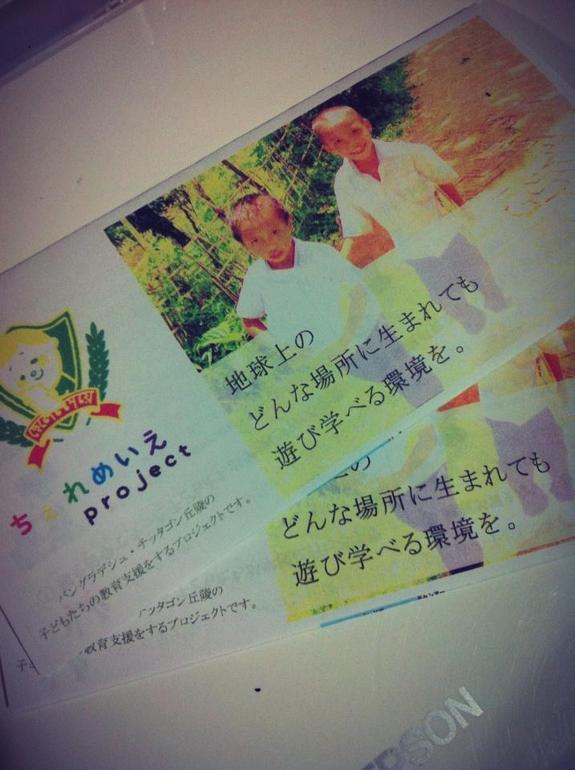 地球上の
どんな場所に生まれても
遊び学べる環境を。
ちぇれめいえ
project
バングラデシュ・チッタゴン丘陵の
子どもたちの教育支援をするプロジェクトです。
上の
どんな場所に生まれても
遊び学べる環境を。
ッタゴン丘陵の
教育支援をするプロジェクトです。
EPSON